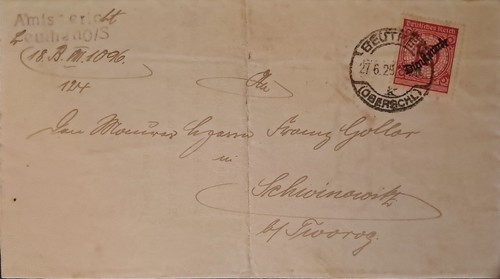 Amtsgericht
Beuthen O/S
18. B. III. 1096.
124
An
Den Maurer Franz Gollor
in
Schwinowitz
b/ Tworog.
BEUTHEN
27.6.25
k
(OBERSCHL)
Deutsches Reich
Dienstmarke